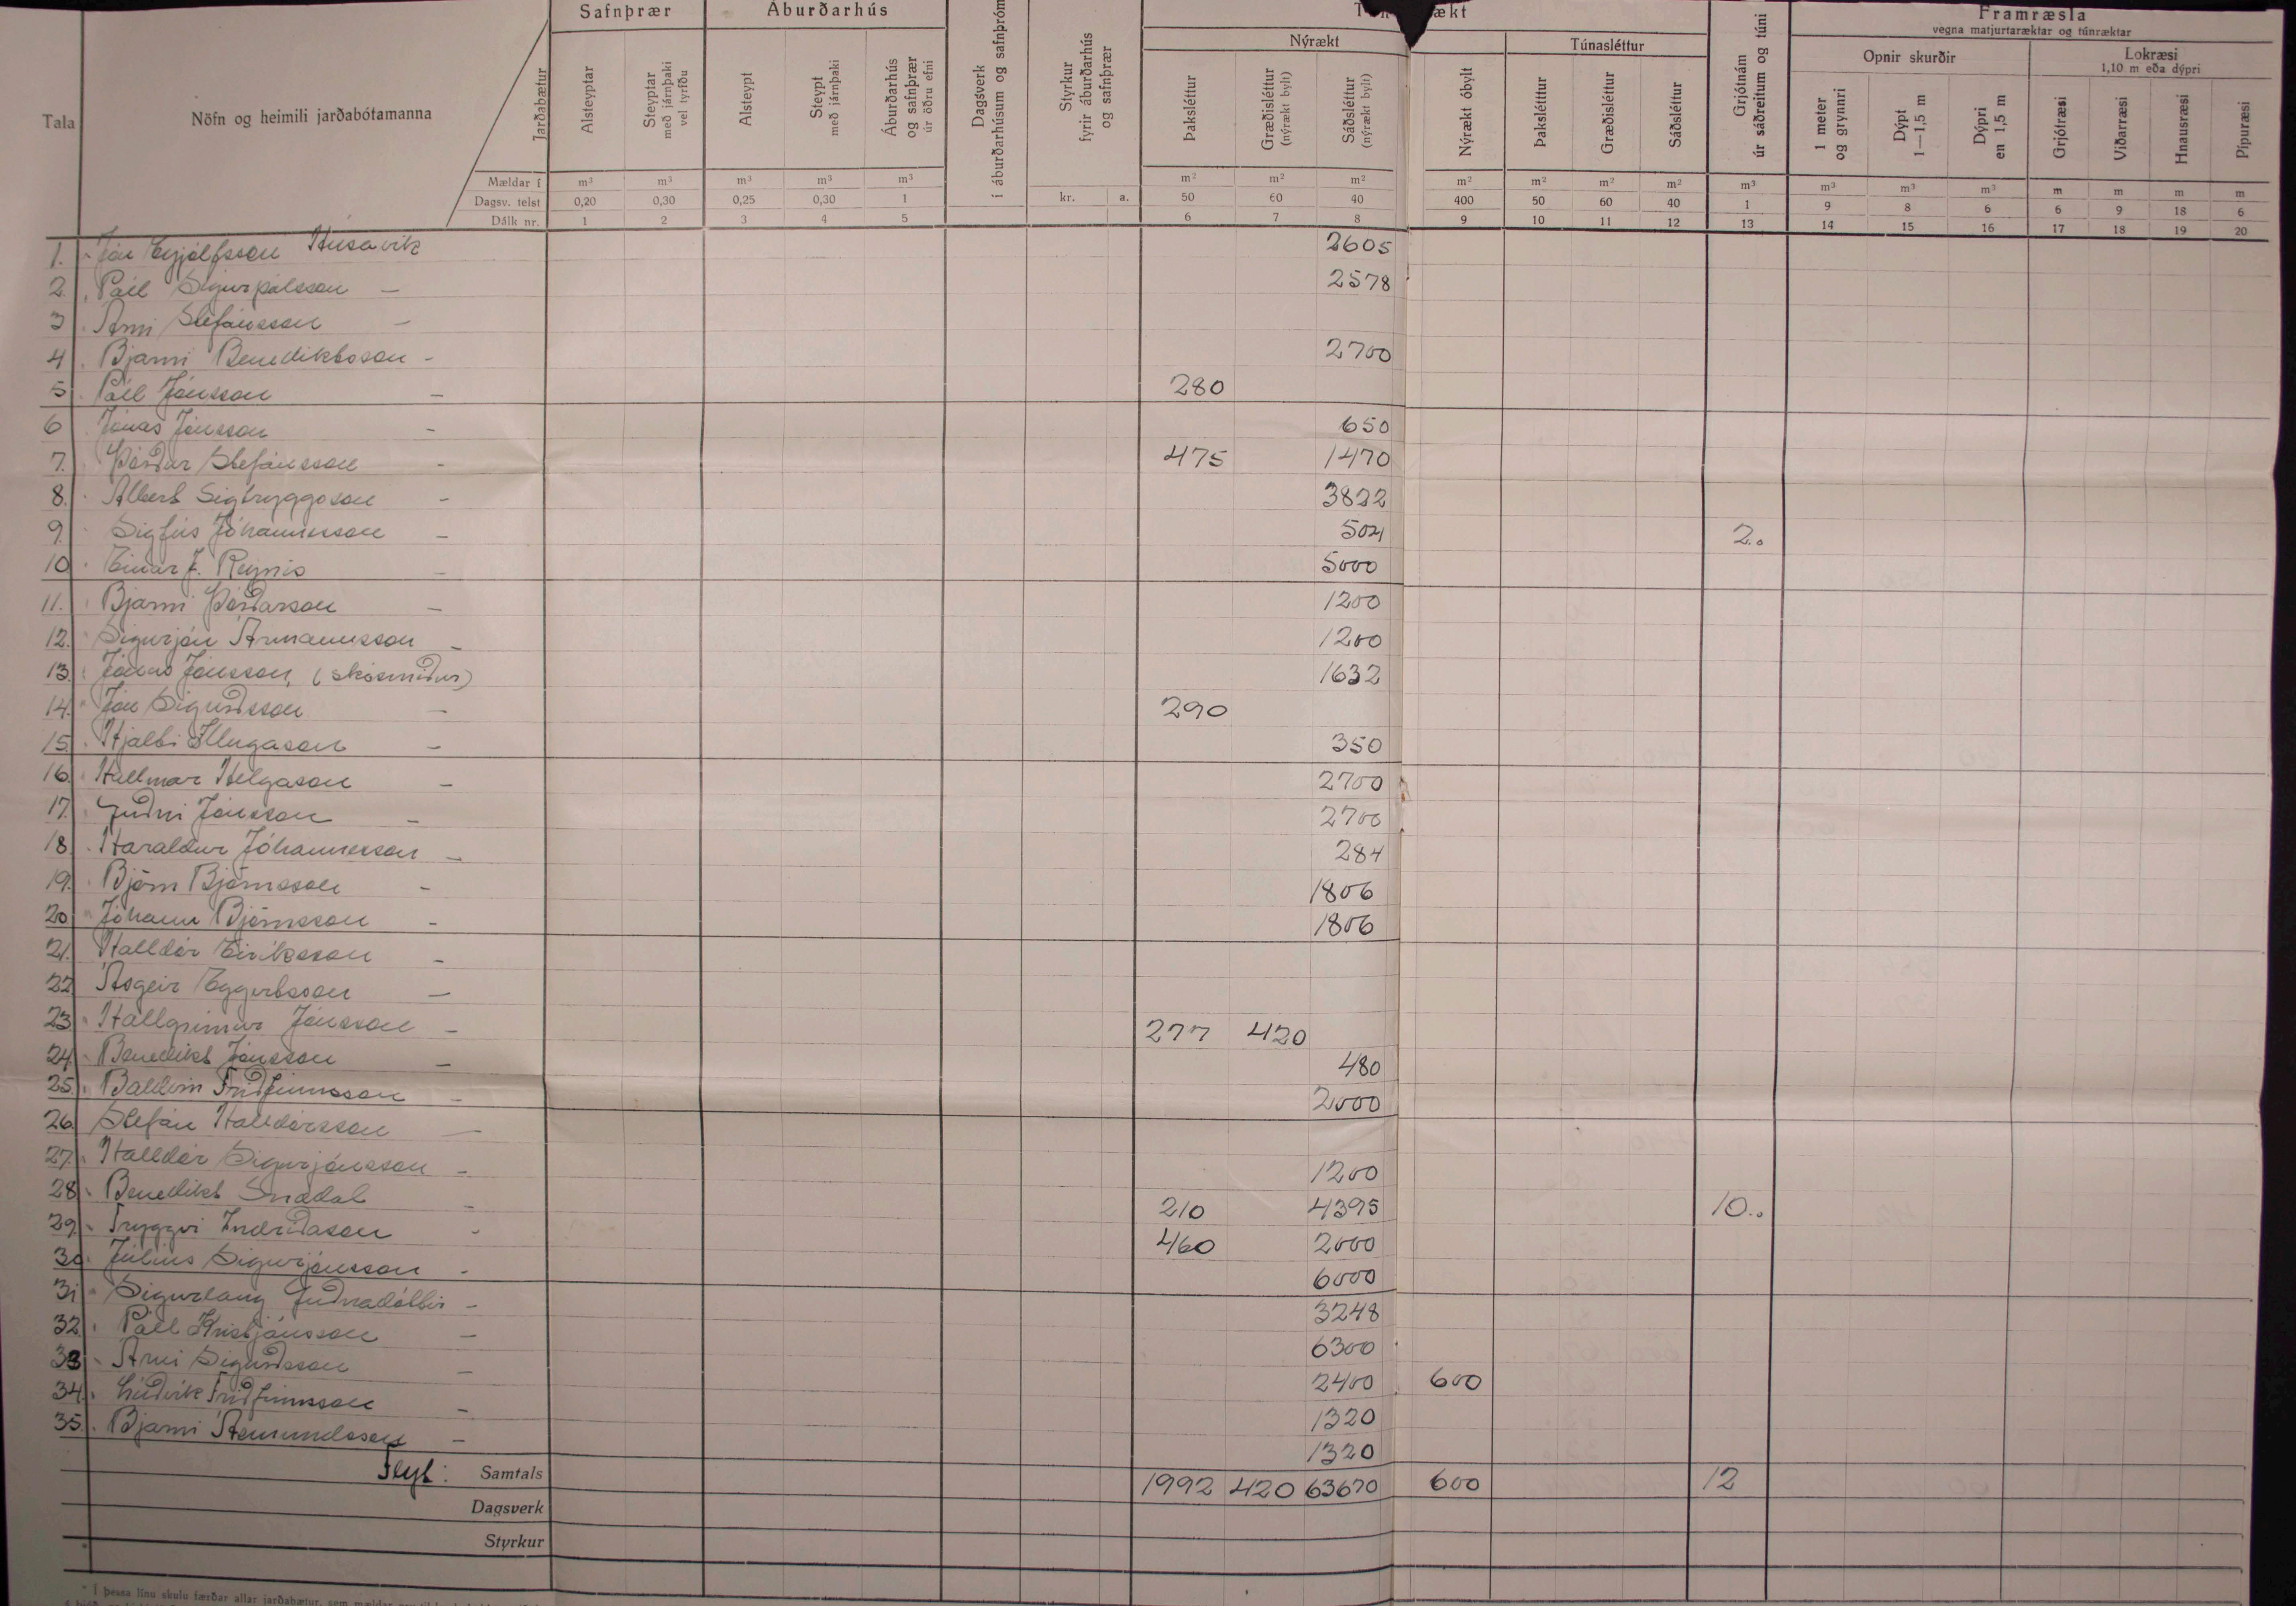 Safnþrær Áburðarhús Framræsla
vegna matjurtaræktar og túnræktar
Nýrækt Túnasléttur Opnir skurðir Lokræsi
1,10 m eða dýpri
Tala Nöfn og heimili jarðabótamanna Jarðabætur
Alsteyptar
Steyptar með járnþaki vel tyrfðu
Alsteypt
Steypt með járnþaki
Áburðarhús og safnþrær úr öðru efni
Dagsverk í áburðarhúsum og safnþróm
Styrkur fyrir áburðarhús og safnþrær
Þaksléttur
Græðisléttur (nýrækt bylt)
Sáðsléttur (nýrækt bylt)
Nýrækt óbylt
Þaksléttur
Græðisléttur
Sáðsléttur
Grjótnám úr sáðreitum og túni
1 meter og grynnri
Dýpt 1—1,5 m
Dýpri en 1,5 m
Grjótræsi
Viðarræsi
Hnausræsi
Pípuræsi
Mældar í m³ m³ m³ m³ m³ m² m² m² m² m² m² m² m³ m³ m³ m³ m m m m
Dagsv. telst 0,20 0,30 0,25 0,30 1 kr. a. 50 60 40 400 50 60 40 1 9 8 6 6 9 18 6
Dálk nr. 1 2 3 4 5 6 7 8 9 10 11 12 13 14 15 16 17 18 19 20
1. Jón Eyjólfsson Húsavík 2605
2. Páll Sigurpálsson – 2578
3 Árni Stefánsson –
4 Bjarni Benediktsson – 2700
5 Páll Jónsson – 280
6 Jónas Jónsson – 650
7. Þórður Stefánsson – 475 1470
8. Albert Sigtryggsson – 3822
9. Sigfús Jóhannesson – 504 2..
10 Einar J. Reynis – 5000
11. Bjarni Þórðarson – 1200
12. Sigurjón Ármannsson – 1200
13. Jónas Jónsson, (skósmiður) 1632
14. Jón Sigurðsson – 290
15. Hjalti Illugason – 350
16. Hallmar Helgason – 2700
17. Guðni Jónsson – 2700
18. Haraldur Jóhannesson – 284
19. Björn Björnsson – 1806
20 Jóhann Björnsson – 1806
21. Halldór Eiríksson –
22 Ásgeir Eggertsson –
23 Hallgrímur Jónsson – 277 420
24. Benedikt Jónsson – 480
25. Baldvin Friðfinnsson – 2000
26. Stefán Halldórsson –
27. Halldór Sigurjónsson – 1200
28. Benedikt Snædal – 210 4395 10..
29. Tryggvi Indriðason – 460 2000
30. Júlíus Sigurjónsson – 6000
31 Sigurlaug Guðnadóttir – 3248
32. Páll Kristjánsson – 6300
33 Árni Sigurðsson – 2400 600
34. Lúðvík Friðfinnsson – 1320
35. Bjarni Ásmundsson – 1320
Flyt: Samtals 1992 420 63670 600 12
Dagsverk
Styrkur
* Í þessa línu skulu færðar allar jarðabætur, sem mældar